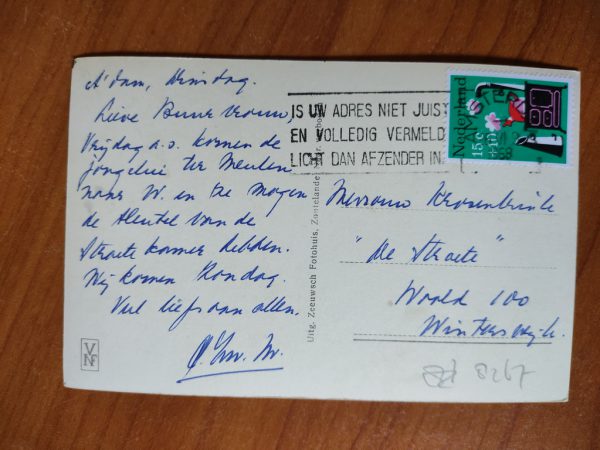 A'dam, Dinsdag.
Lieve Buurvrouw,
Vrijdag a.s. komen de
jongelui ter Meulen
naar W. en ze mogen
de sleutel van de
Straete kamer hebben.
Wij komen Zondag.
Veel liefs aan allen.
VNF
Uitg. Zeeuwsch Fotohuis, Zoutelande
IS UW ADRES NIET JUIST
EN VOLLEDIG VERMELD
LICHT DAN AFZENDER IN
Nederland
15 c
+10
Mevrouw
"De Straete"
Woold 100
Winterswijk.
8267